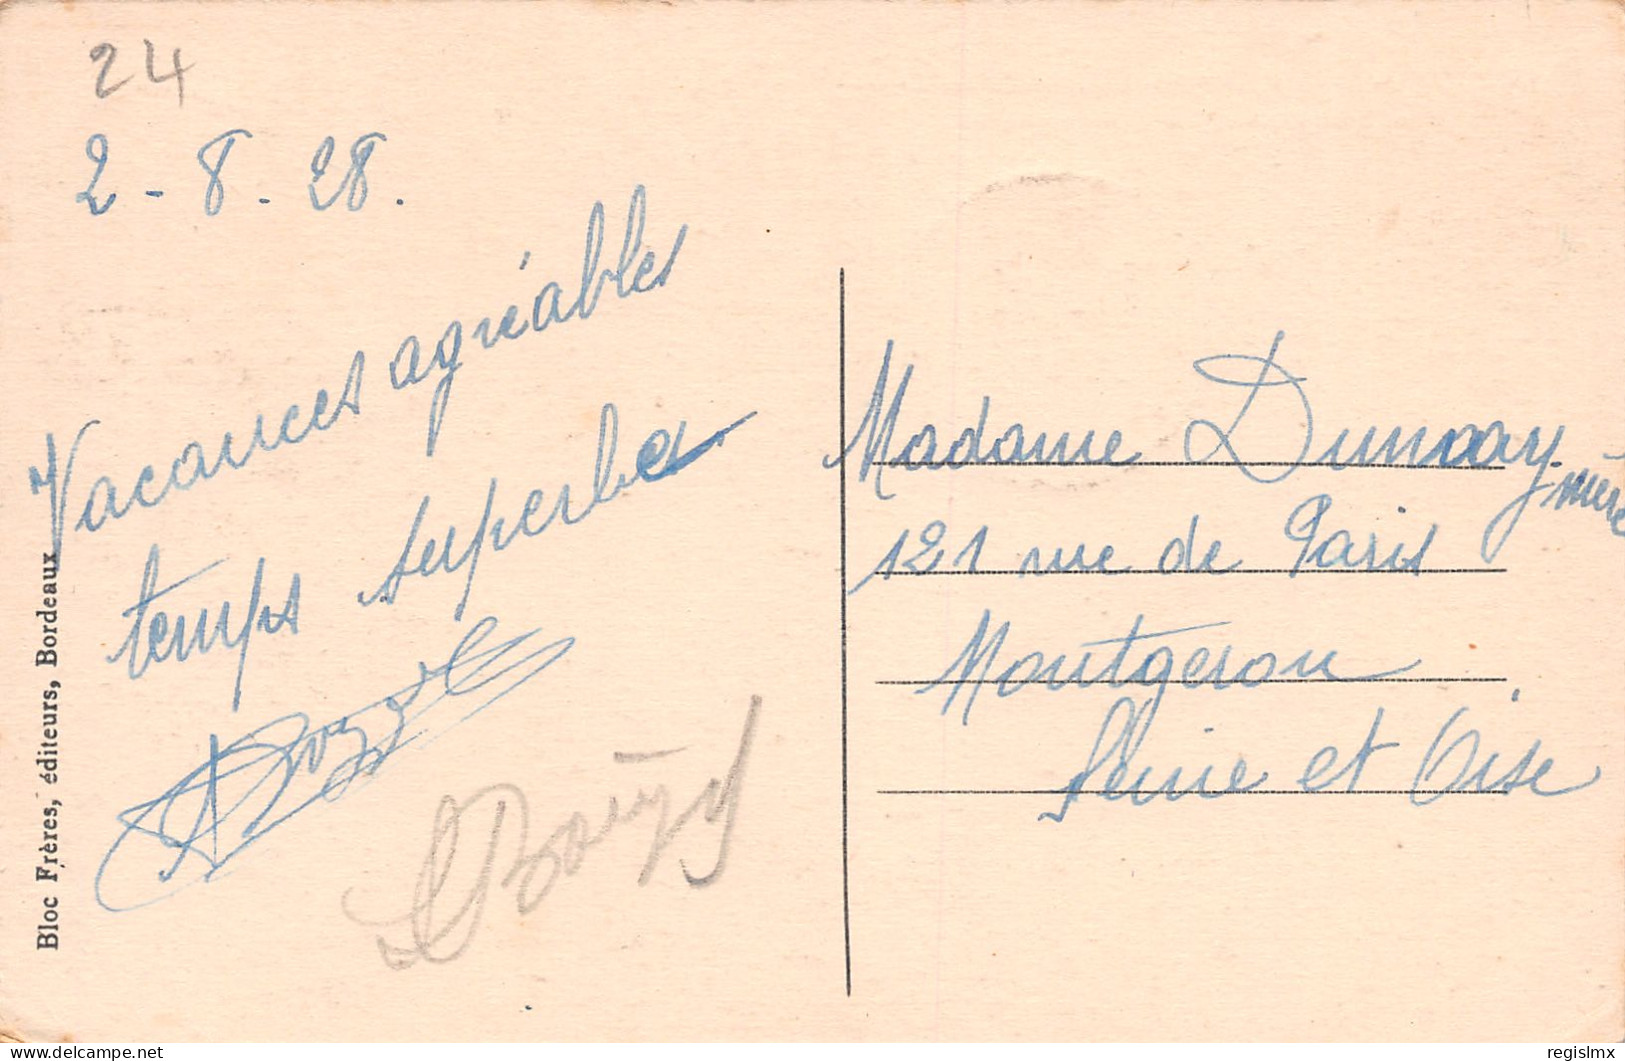 24
2 - 8 . 28.
Vacances agréables
temps superbe
Bloc Frères, éditeurs, Bordeaux
Madame mère
121 rue de Paris
Montgeron
Seine et Oise
delcampe.net
regislmx